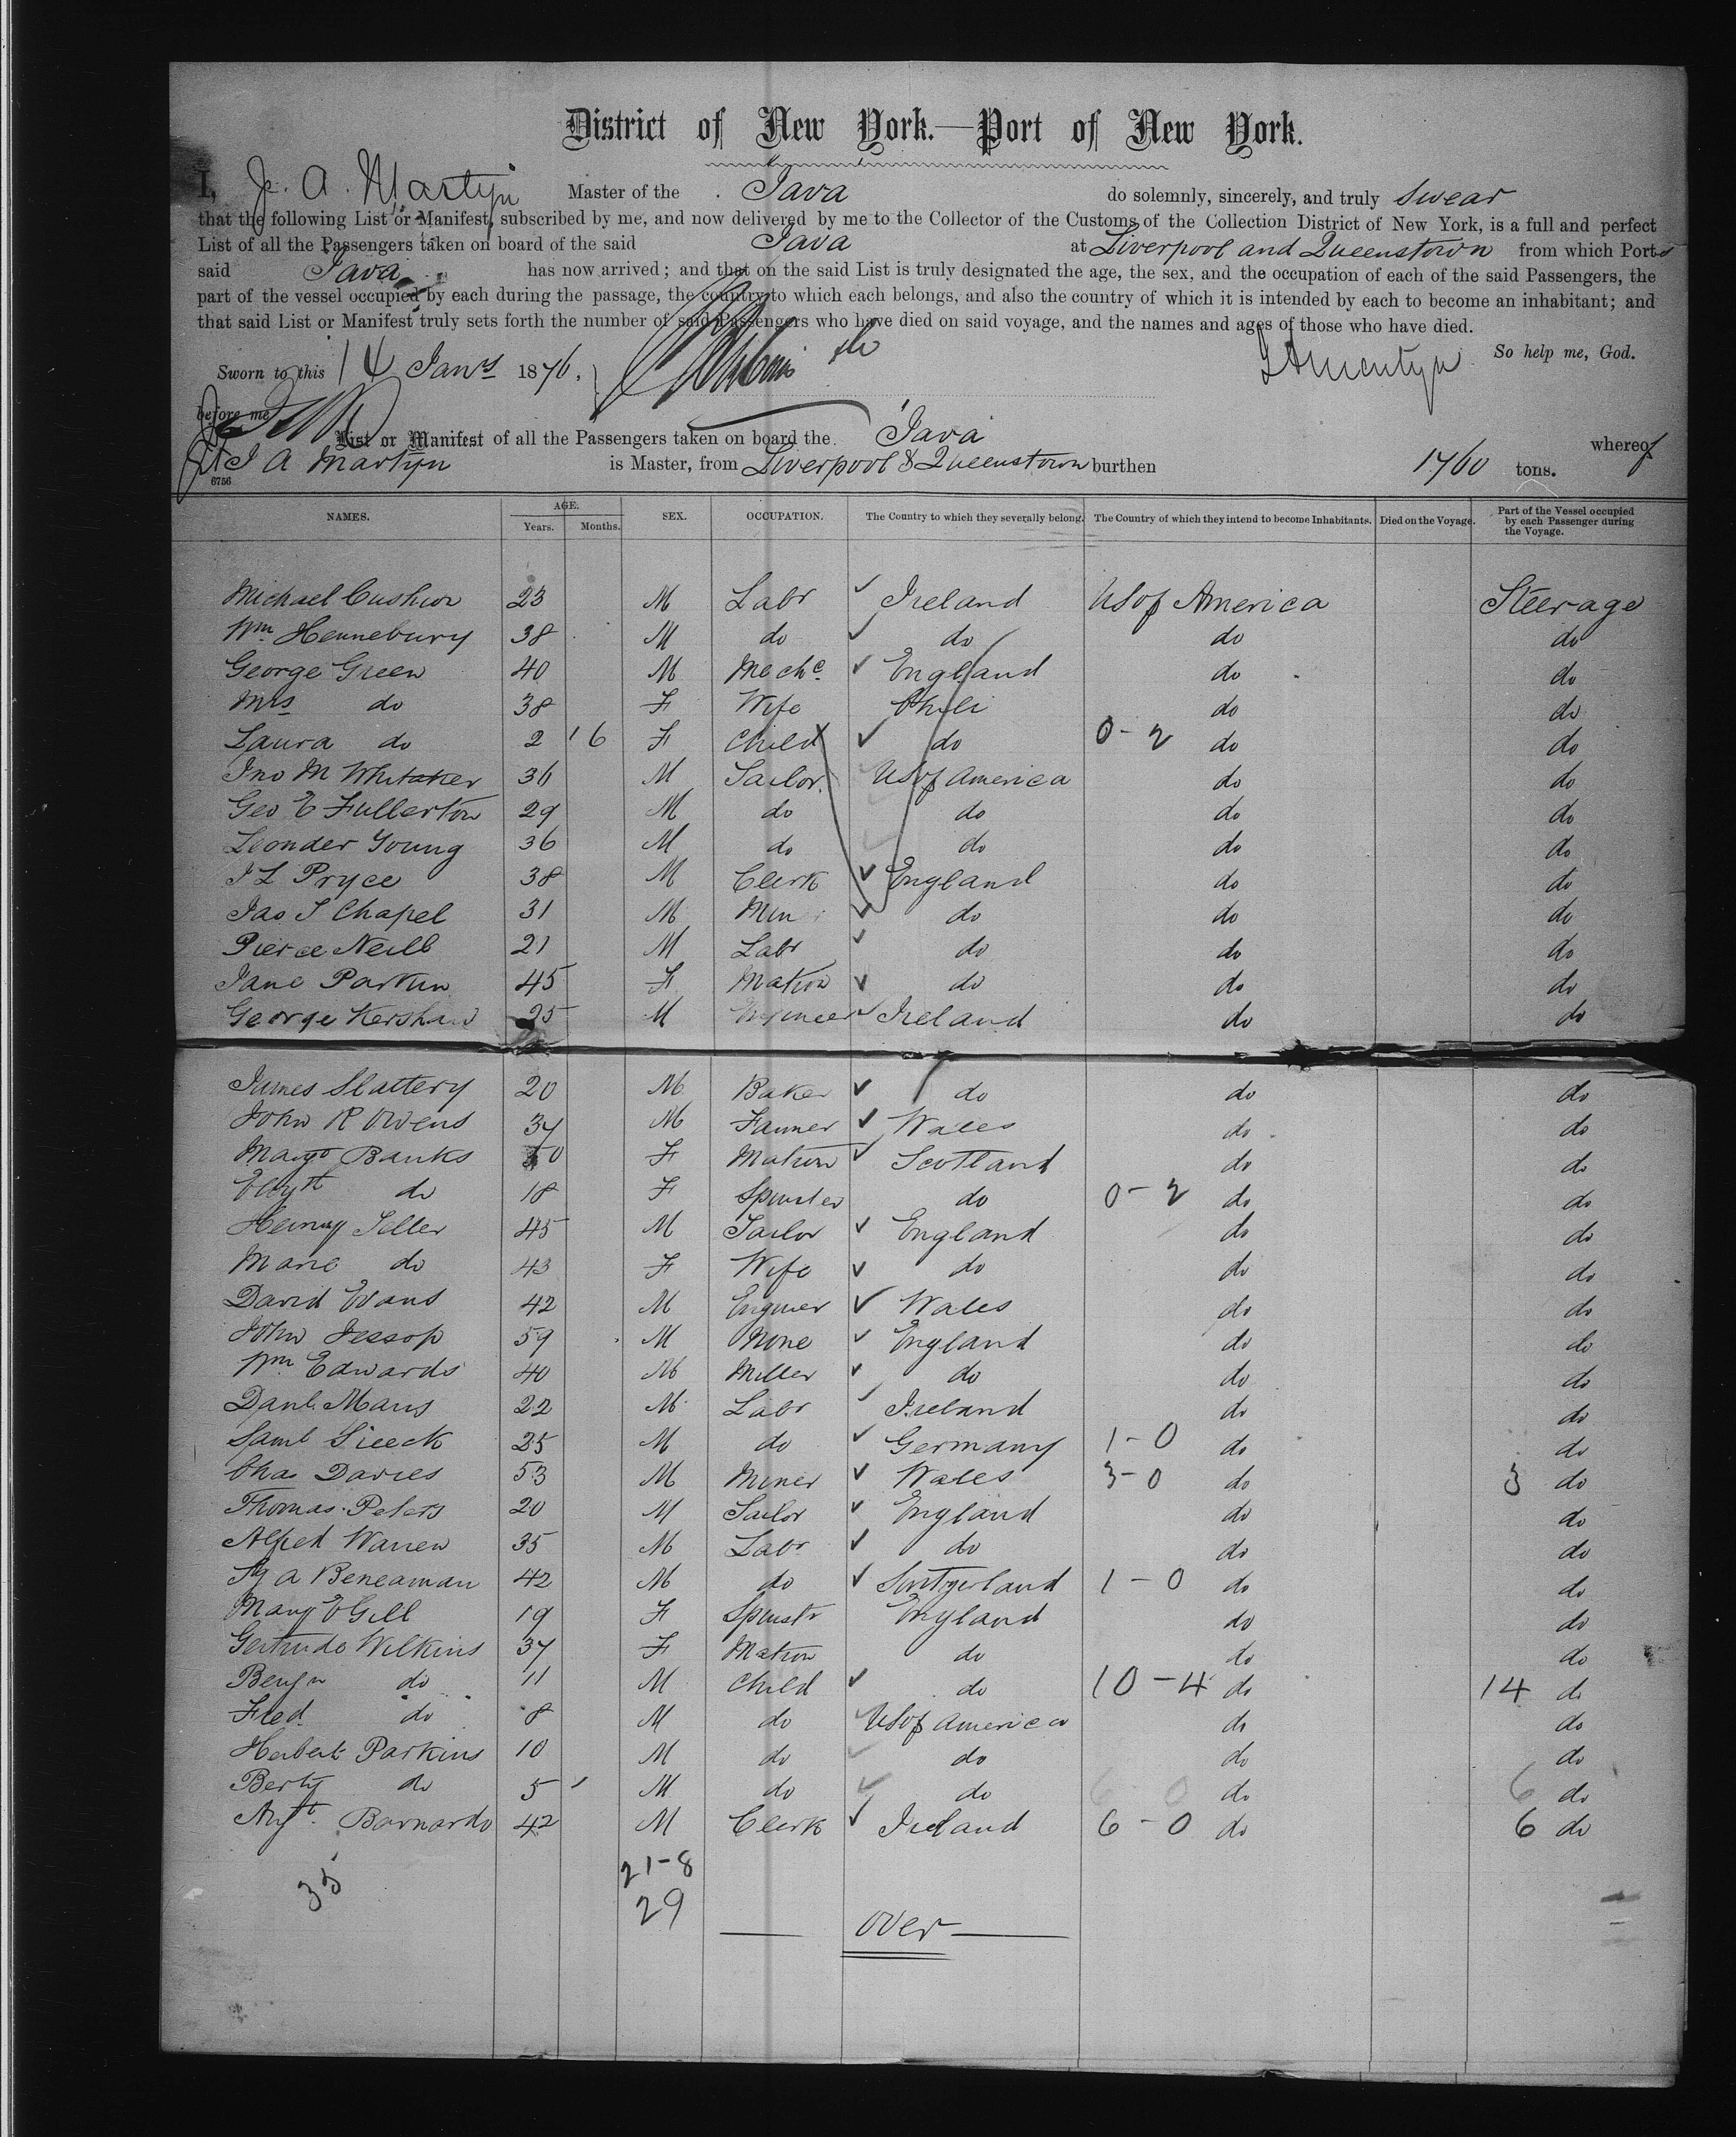 District of New York.—Port of New York.
I, J. A. Martyn Master of the Java do solemnly, sincerely, and truly swear
that the following List or Manifest, subscribed by me, and now delivered by me to the Collector of the Customs of the Collection District of New York, is a full and perfect
List of all the Passengers taken on board of the said Java at Liverpool and Queenstown from which Ports
said Java has now arrived; and that on the said List is truly designated the age, the sex, and the occupation of each of the said Passengers, the
part of the vessel occupied by each during the passage, the country to which each belongs, and also the country of which it is intended by each to become an inhabitant; and
that said List or Manifest truly sets forth the number of said Passengers who have died on said voyage, and the names and ages of those who have died.
So help me, God.
Sworn to this 14 Jany 1876, J A Martyn
before me
List or Manifest of all the Passengers taken on board the Java whereof
J A Martyn is Master, from Liverpool & Queenstown burthen 1760 tons.
6756
NAMES. AGE. Years. Months. SEX. OCCUPATION. The Country to which they severally belong. The Country of which they intend to become Inhabitants. Died on the Voyage. Part of the Vessel occupied by each Passenger during the Voyage.
Michael Cushion 23 M Labr Ireland US of America Steerage
Wm Hennebury 38 M do do do do
George Green 40 M Mechc England do do
Mrs do 38 F Wife Chili do do
Laura do 2 6 F Child do 0-2 do do
Jno M Whitaker 36 M Sailor US of America do do
Geo E Fullerton 29 M do do do do
Leonder Young 36 M do do do do
J L Pryce 38 M Clerk England do do
Jas S Chapel 31 M Min do do do
Pierce Neill 21 M Labr do do do
Jane Parkin 45 F Matron do do do
George Kershaw 25 M Engineer Ireland do do
James Slattery 20 M Baker do do do
John R Owens 37 M Farmer Wales do do
Margt Banks 50 F Matron Scotland do do
Elizth do 18 F Spinster do 0-2 do do
Henry Seller 45 M Tailor England do do
Marie do 43 F Wife do do do
David Evans 42 M Engineer Wales do do
John Jessop 59 M None England do do
Wm Edwards 40 M Miller do do do
Danl. Mars 22 M Labr Ireland do do
Saml Sieeck 25 M do Germany 1-0 do do
Chas Davies 53 M Miner Wales 3-0 do 3 do
Thomas Peters 20 M Sailor England do do
Alfred Warren 35 M Labr do do do
A Beneaman 42 M do Switzerland 1-0 do do
Mary E Gill 19 F Spinstr England do do
Gertrude Wilkins 37 F Matron do do do
Benjn do 11 M Child do 10-4 do 14 do
Fred. do 8 M do US of America do do
Herbert Parkins 10 M do do do do
Berty do 5 M do do 6 0 do 6 do
Augt. Barnardo 42 M Clerk Ireland 6-0 do 6 do
35 21-8
29
over